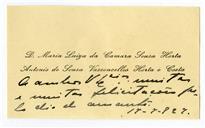 D. Maria Luiza da Camara Sousa Horta
Antonio de Sousa Vasconcellos Horta e Costa
A ambos V. Ex.ᵃˢ muitas
e muitas felicitações pe
lo dia de amanhã.
17-7-927.